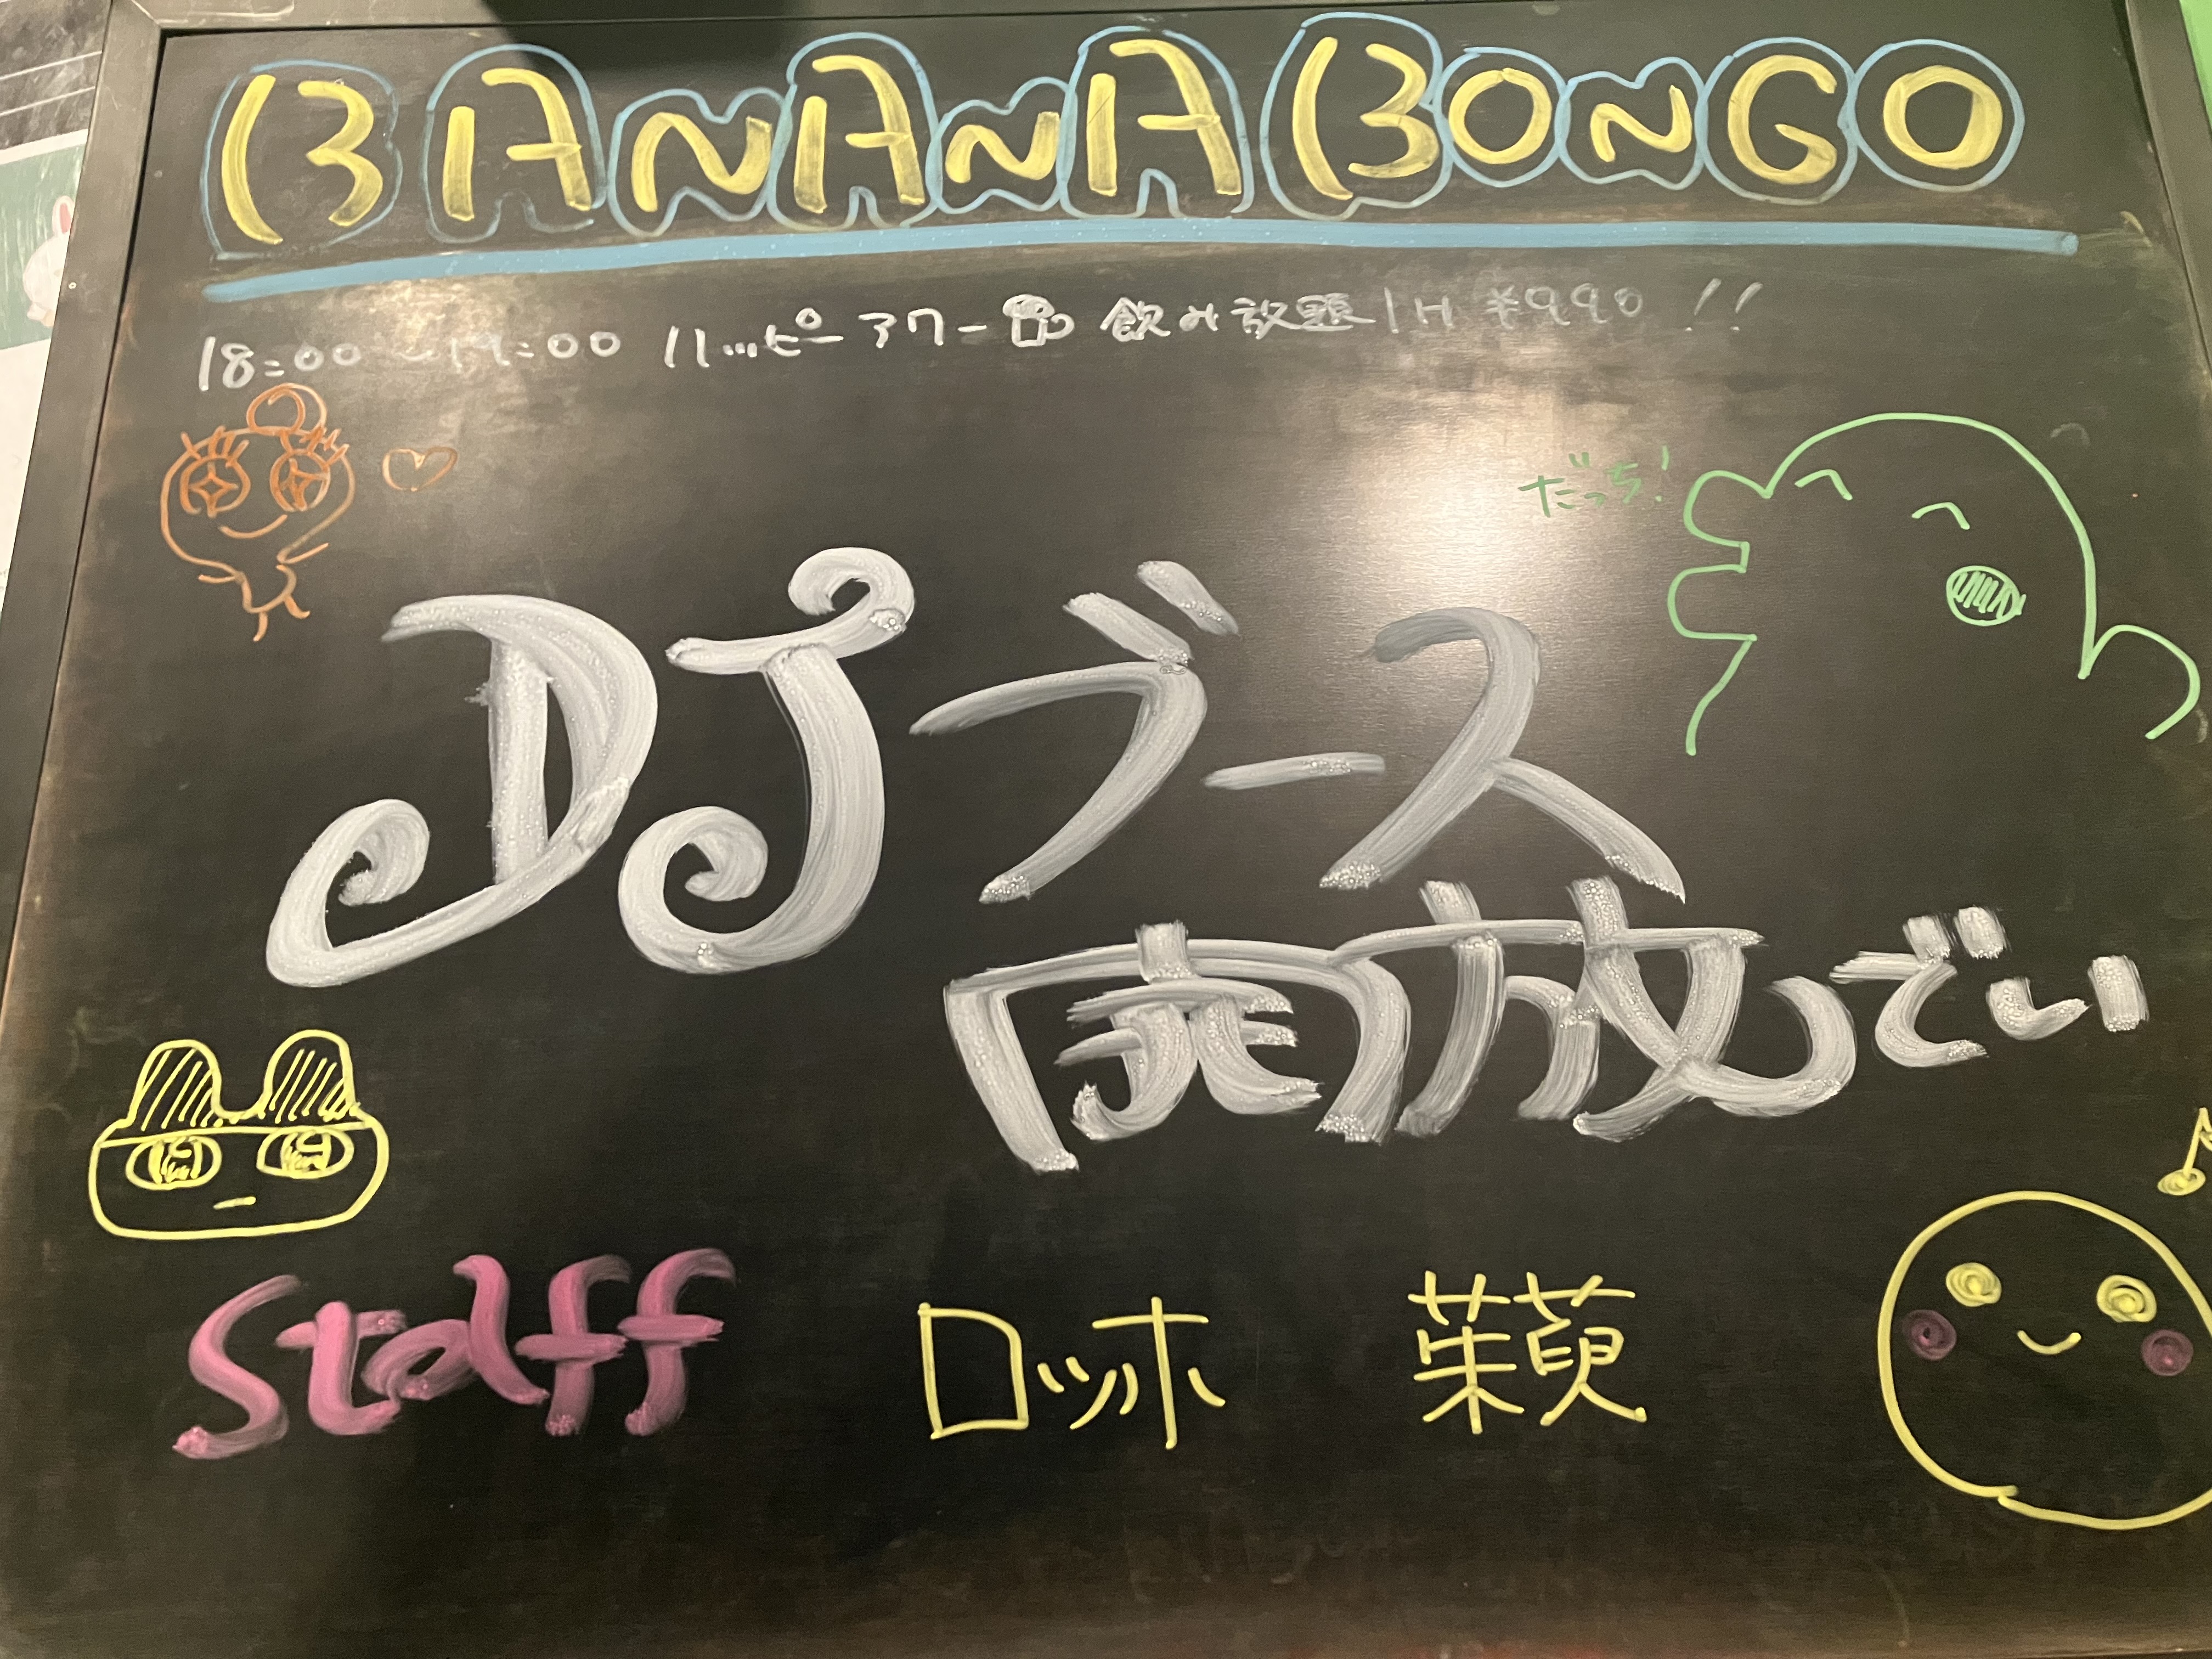 BANANA BONGO
18:00~19:00 ハッピーアワー 飲み放題 1H ¥990!!
だっち!
DJブース
開放でい
Staff ロッホ